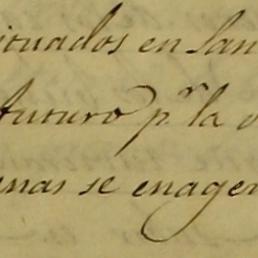 ituados en San
futuro p.r la
enas se enagen